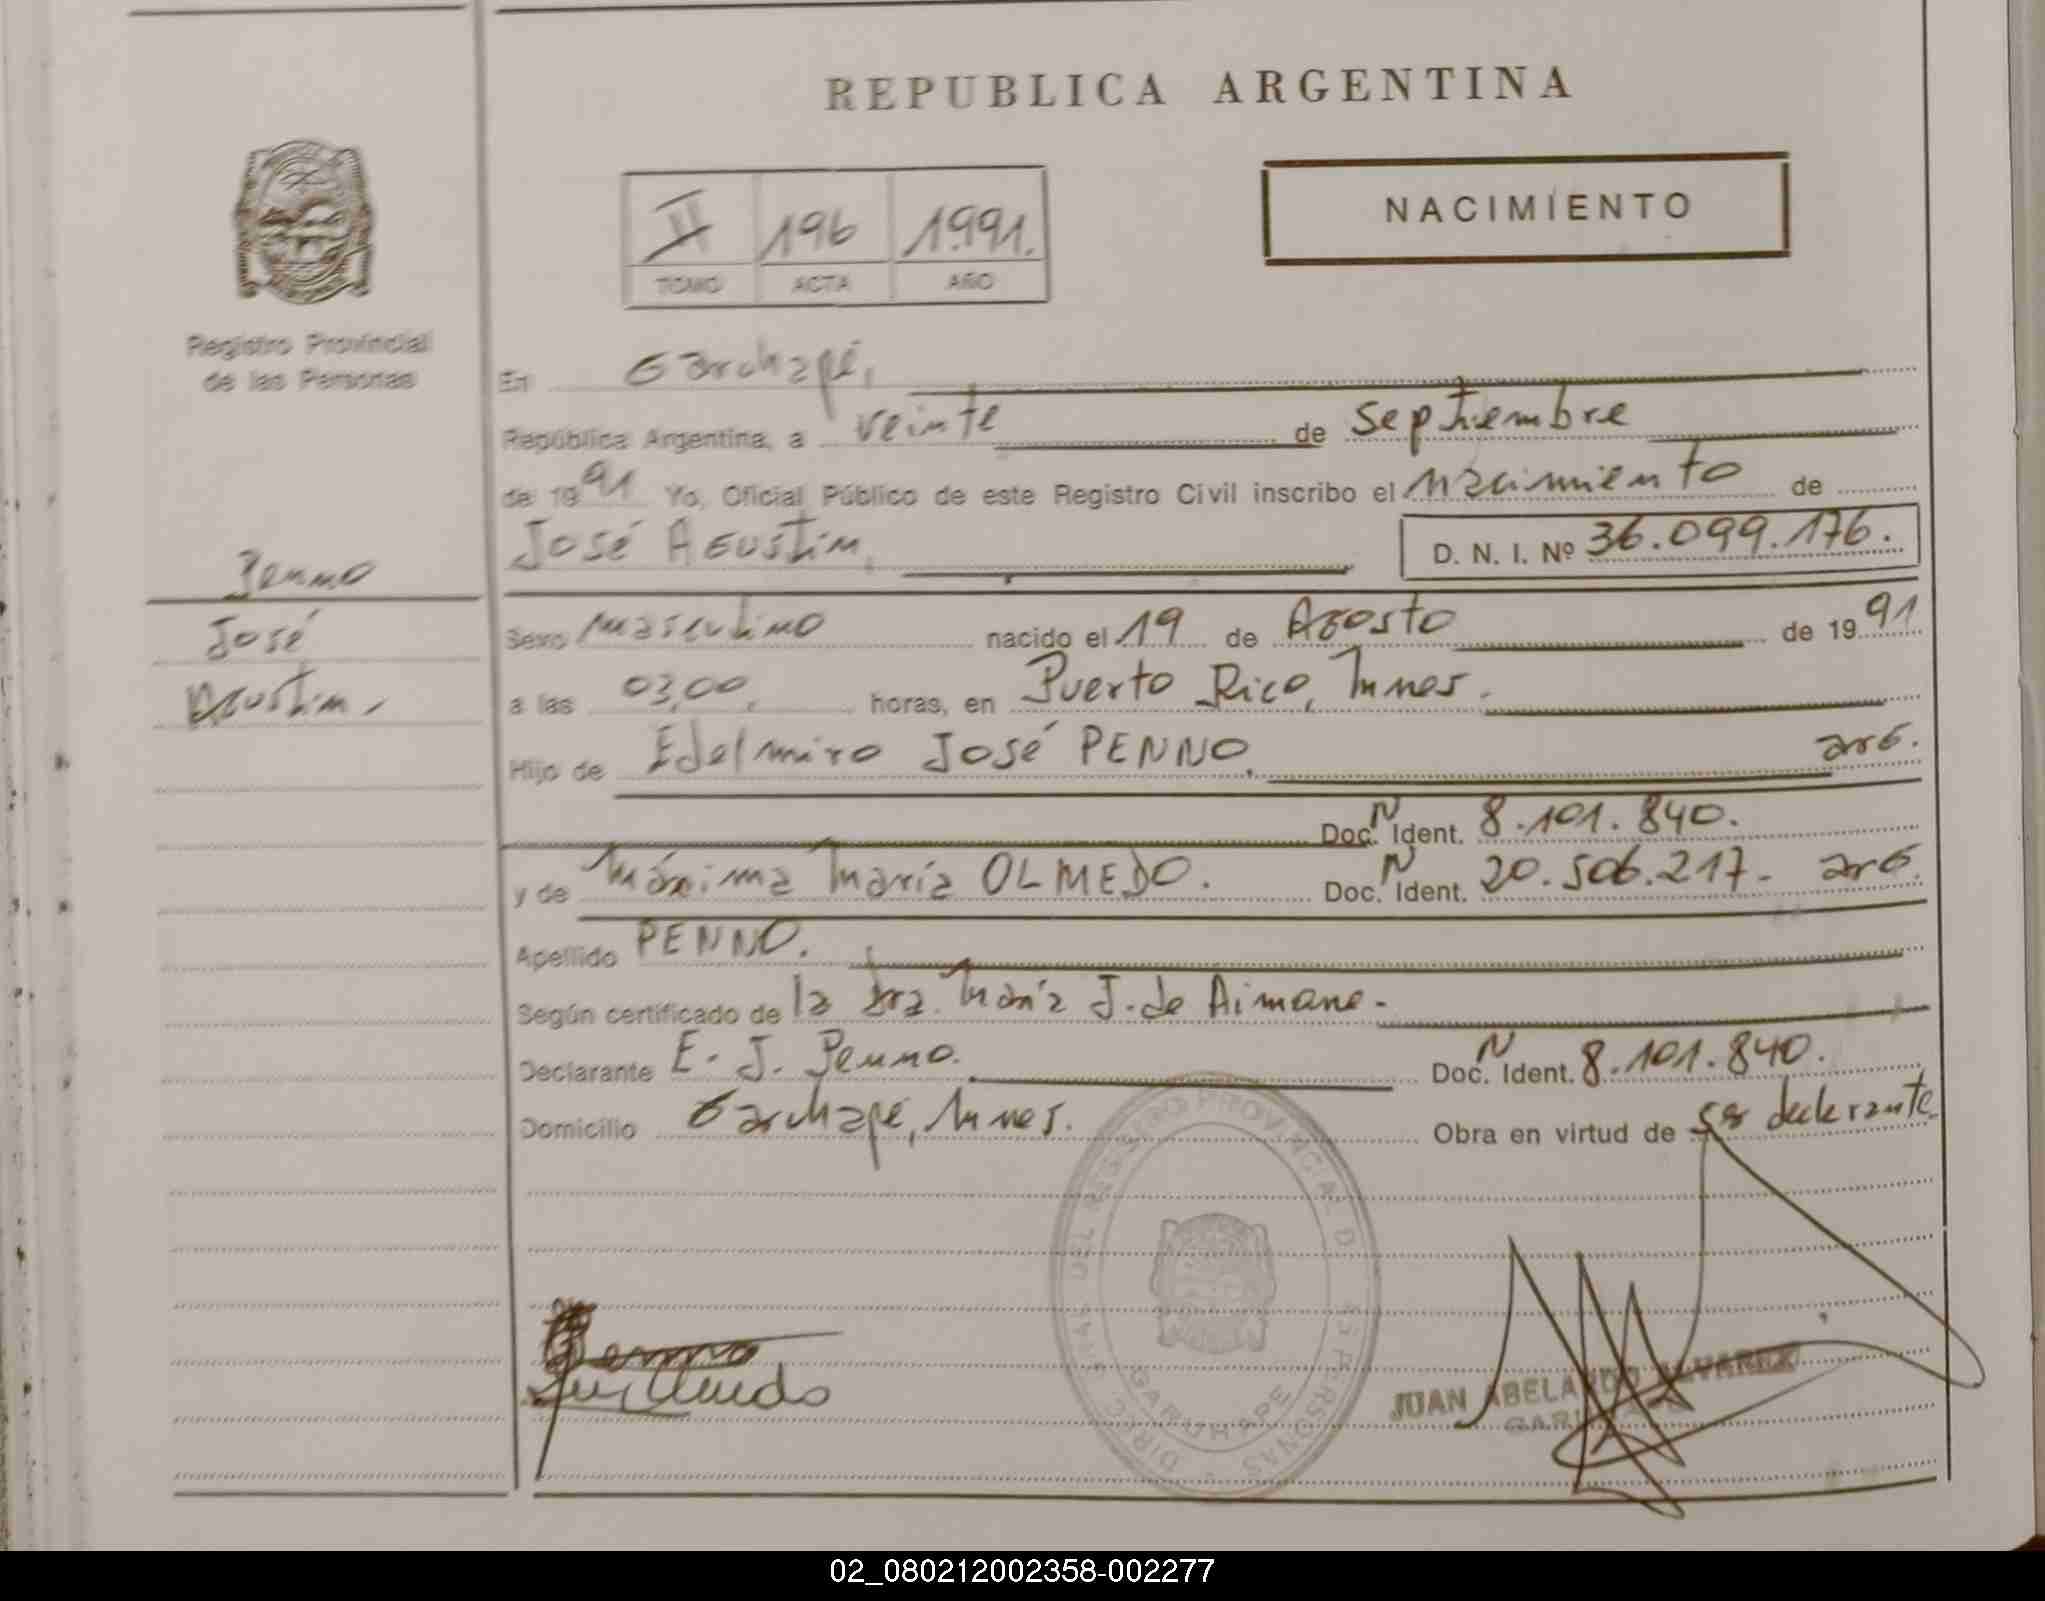 REPUBLICA ARGENTINA
NACIMIENTO
II 196 1991.
TOMO ACTA AÑO
Registro Provincial
de las Personas
Penno
José
Agustín.
En Garuhapé,
República Argentina, a veinte de septiembre
de 1991 Yo, Oficial Público de este Registro Civil inscribo el nacimiento de
José Agustín, D. N. I. Nº 36.099.176.
Sexo masculino nacido el 19 de Agosto de 1991
a las 03,00, horas, en Puerto Rico, Mnes.
Hijo de Edelmiro José PENNO, arg.
Doc. N Ident. 8.101.840.
y de Máxima María OLMEDO. Doc. N Ident. 20.506.217- arg.
Apellido PENNO.
Según certificado de la Dra. María J. de Aimone-
Declarante E. J. Penno. Doc. N Ident. 8.101.840.
Domicilio Garuhapé, Mnes. Obra en virtud de ser declarante
DIREC. GRAL. DEL REGISTRO PROVINCIAL DE LAS PERSONAS
GARUHAPE
Penno
JUAN ABELARDO ALVAREZ
02_080212002358-002277